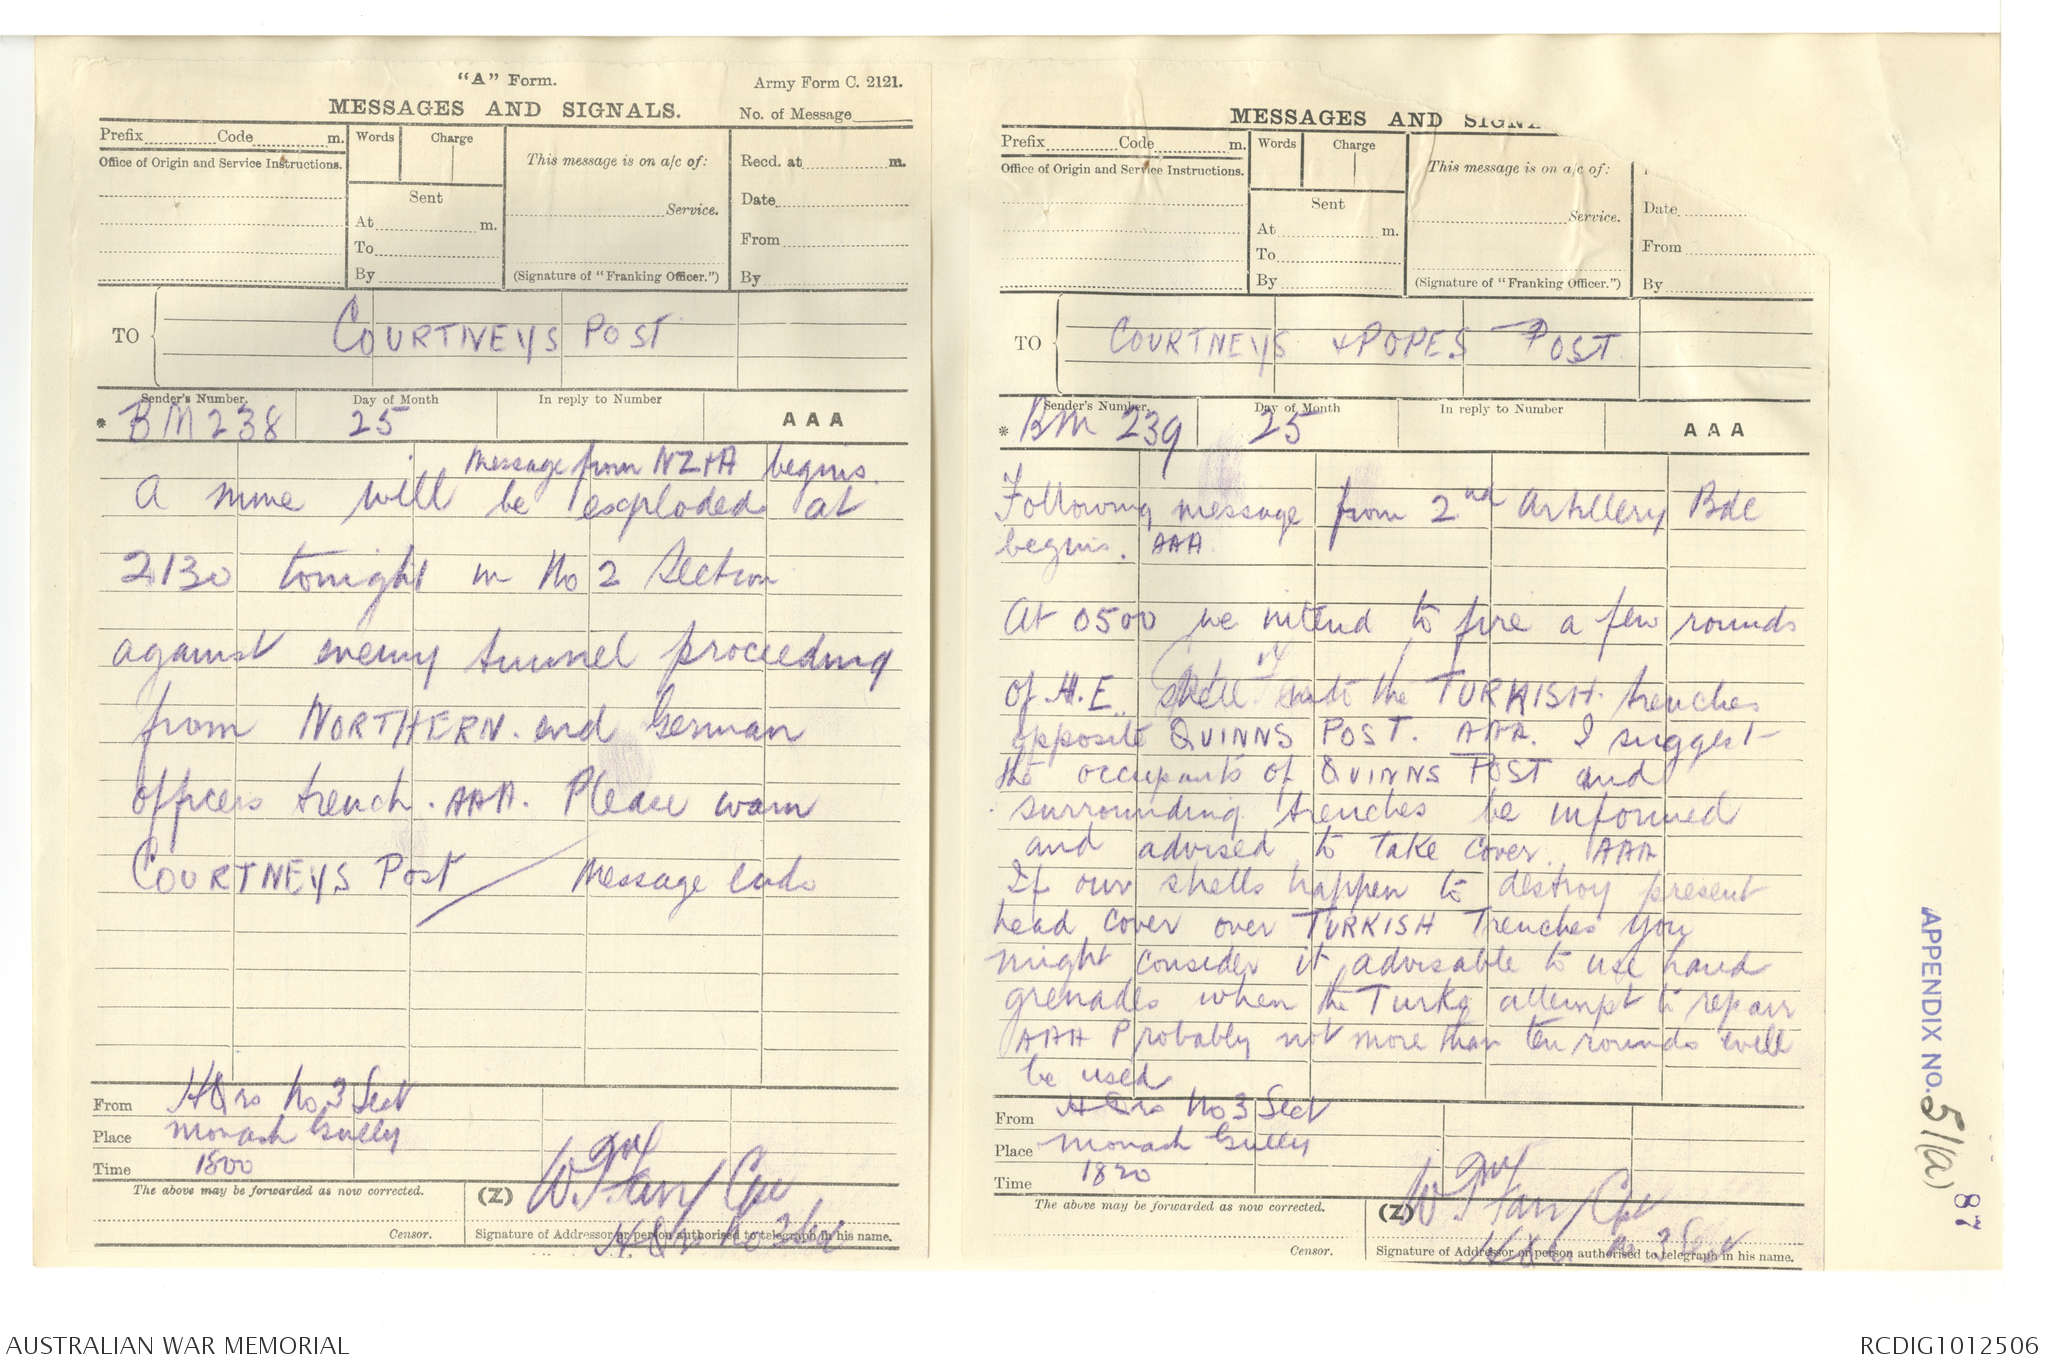 "A" Form.
Army Form C. 2121.
MESSAGES AND SIGNALS.
No. of Message
Prefix Code m.
Words Charge
This message is on a/c of:
Recd. at m.
Office of Origin and Service Instructions.
Sent
Service.
Date
At m.
To
From
By
(Signature of "Franking Officer.")
By
TO
COURTNEYS POST
Sender's Number.
Day of Month
In reply to Number
* BM 238
25
AAA
Message from NZ+A begins.
A mine will be exploded at
2130 tonight in No 2 Section
against enemy tunnel proceeding
from NORTHERN. end German
officers trench. AAA. Please warn
COURTNEYS Post / Message ends
From HQrs No 3 Sect
Place Monash Gully
Time 1800
The above may be forwarded as now corrected.
(Z)
Censor.
Signature of Addressor or person authorised to telegraph in his name.
HQrs No 3 Sect
MESSAGES AND SIGN
Prefix Code m.
Words Charge
This message is on a/c of:
Office of Origin and Service Instructions.
Sent
Service.
Date
At m.
To
From
By
(Signature of "Franking Officer.")
By
TO
COURTNEYS + POPES POST
Sender's Number.
Day of Month
In reply to Number
* BM 239
25
AAA
Following message from 2nd Artillery Bde
begins. AAA
At 0500 we intend to fire a few rounds
of H.E. shell the TURKISH trenches
opposite QUINNS POST. AAA. I suggest
the occupants of QUINNS POST and
surrounding trenches be informed
and advised to take cover. AAA
If our shells happen to destroy present
head cover over TURKISH Trenches you
might consider it advisable to use hand
grenades when the Turks attempt to repair
AAA Probably not more than ten rounds will
be used
From HQrs No 3 Sect
Place Monash Gully
Time 1820
The above may be forwarded as now corrected.
(Z)
Censor.
Signature of Addressor or person authorised to telegraph in his name.
APPENDIX NO. 51(a)
87
AUSTRALIAN WAR MEMORIAL
RCDIG1012506